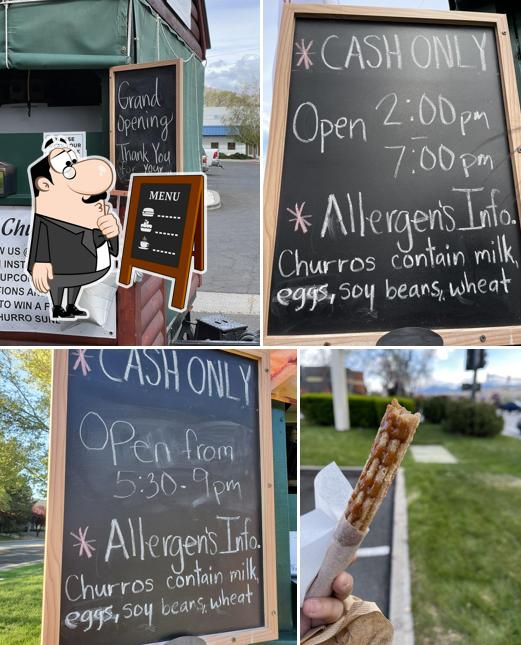 Grand
Opening
Thank You
for your
MENU
Chu
W US @
N INST
UPCO
TIONS A
TO WIN A F
HURRO SUN
* CASH ONLY
Open 2:00pm
-
7:00pm
* Allergen's Info.
Churros contain milk,
eggs, soy beans, wheat
* CASH ONLY
Open from
5:30-9pm
* Allergen's Info.
Churros contain milk,
eggs, soy beans, wheat